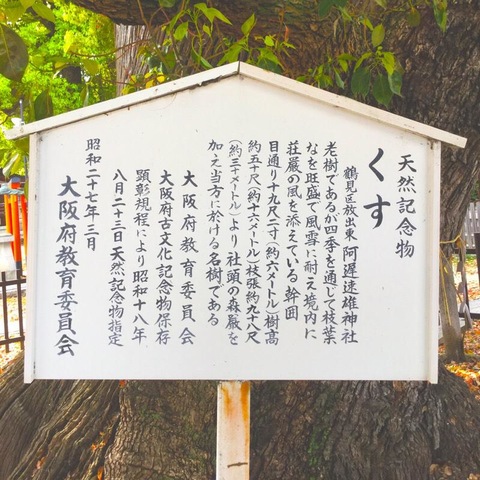 天然記念物
くす
鶴見区放出東 阿遅速雄神社
老樹であるが四季を通じて枝葉
なを旺盛で風雪に耐え境内に
荘厳の風を添えている 幹囲
目通り十九尺二寸(約六メートル)樹高
約五十尺(約十六メートル)枝張約九十八尺
(約三十メートル)より社頭の森厳を
加え当方に於ける名樹である
大阪府教育委員会
大阪府古文化記念物保存
顕彰規程により昭和十八年
八月二十三日天然記念物指定
昭和二十七年三月
大阪府教育委員会